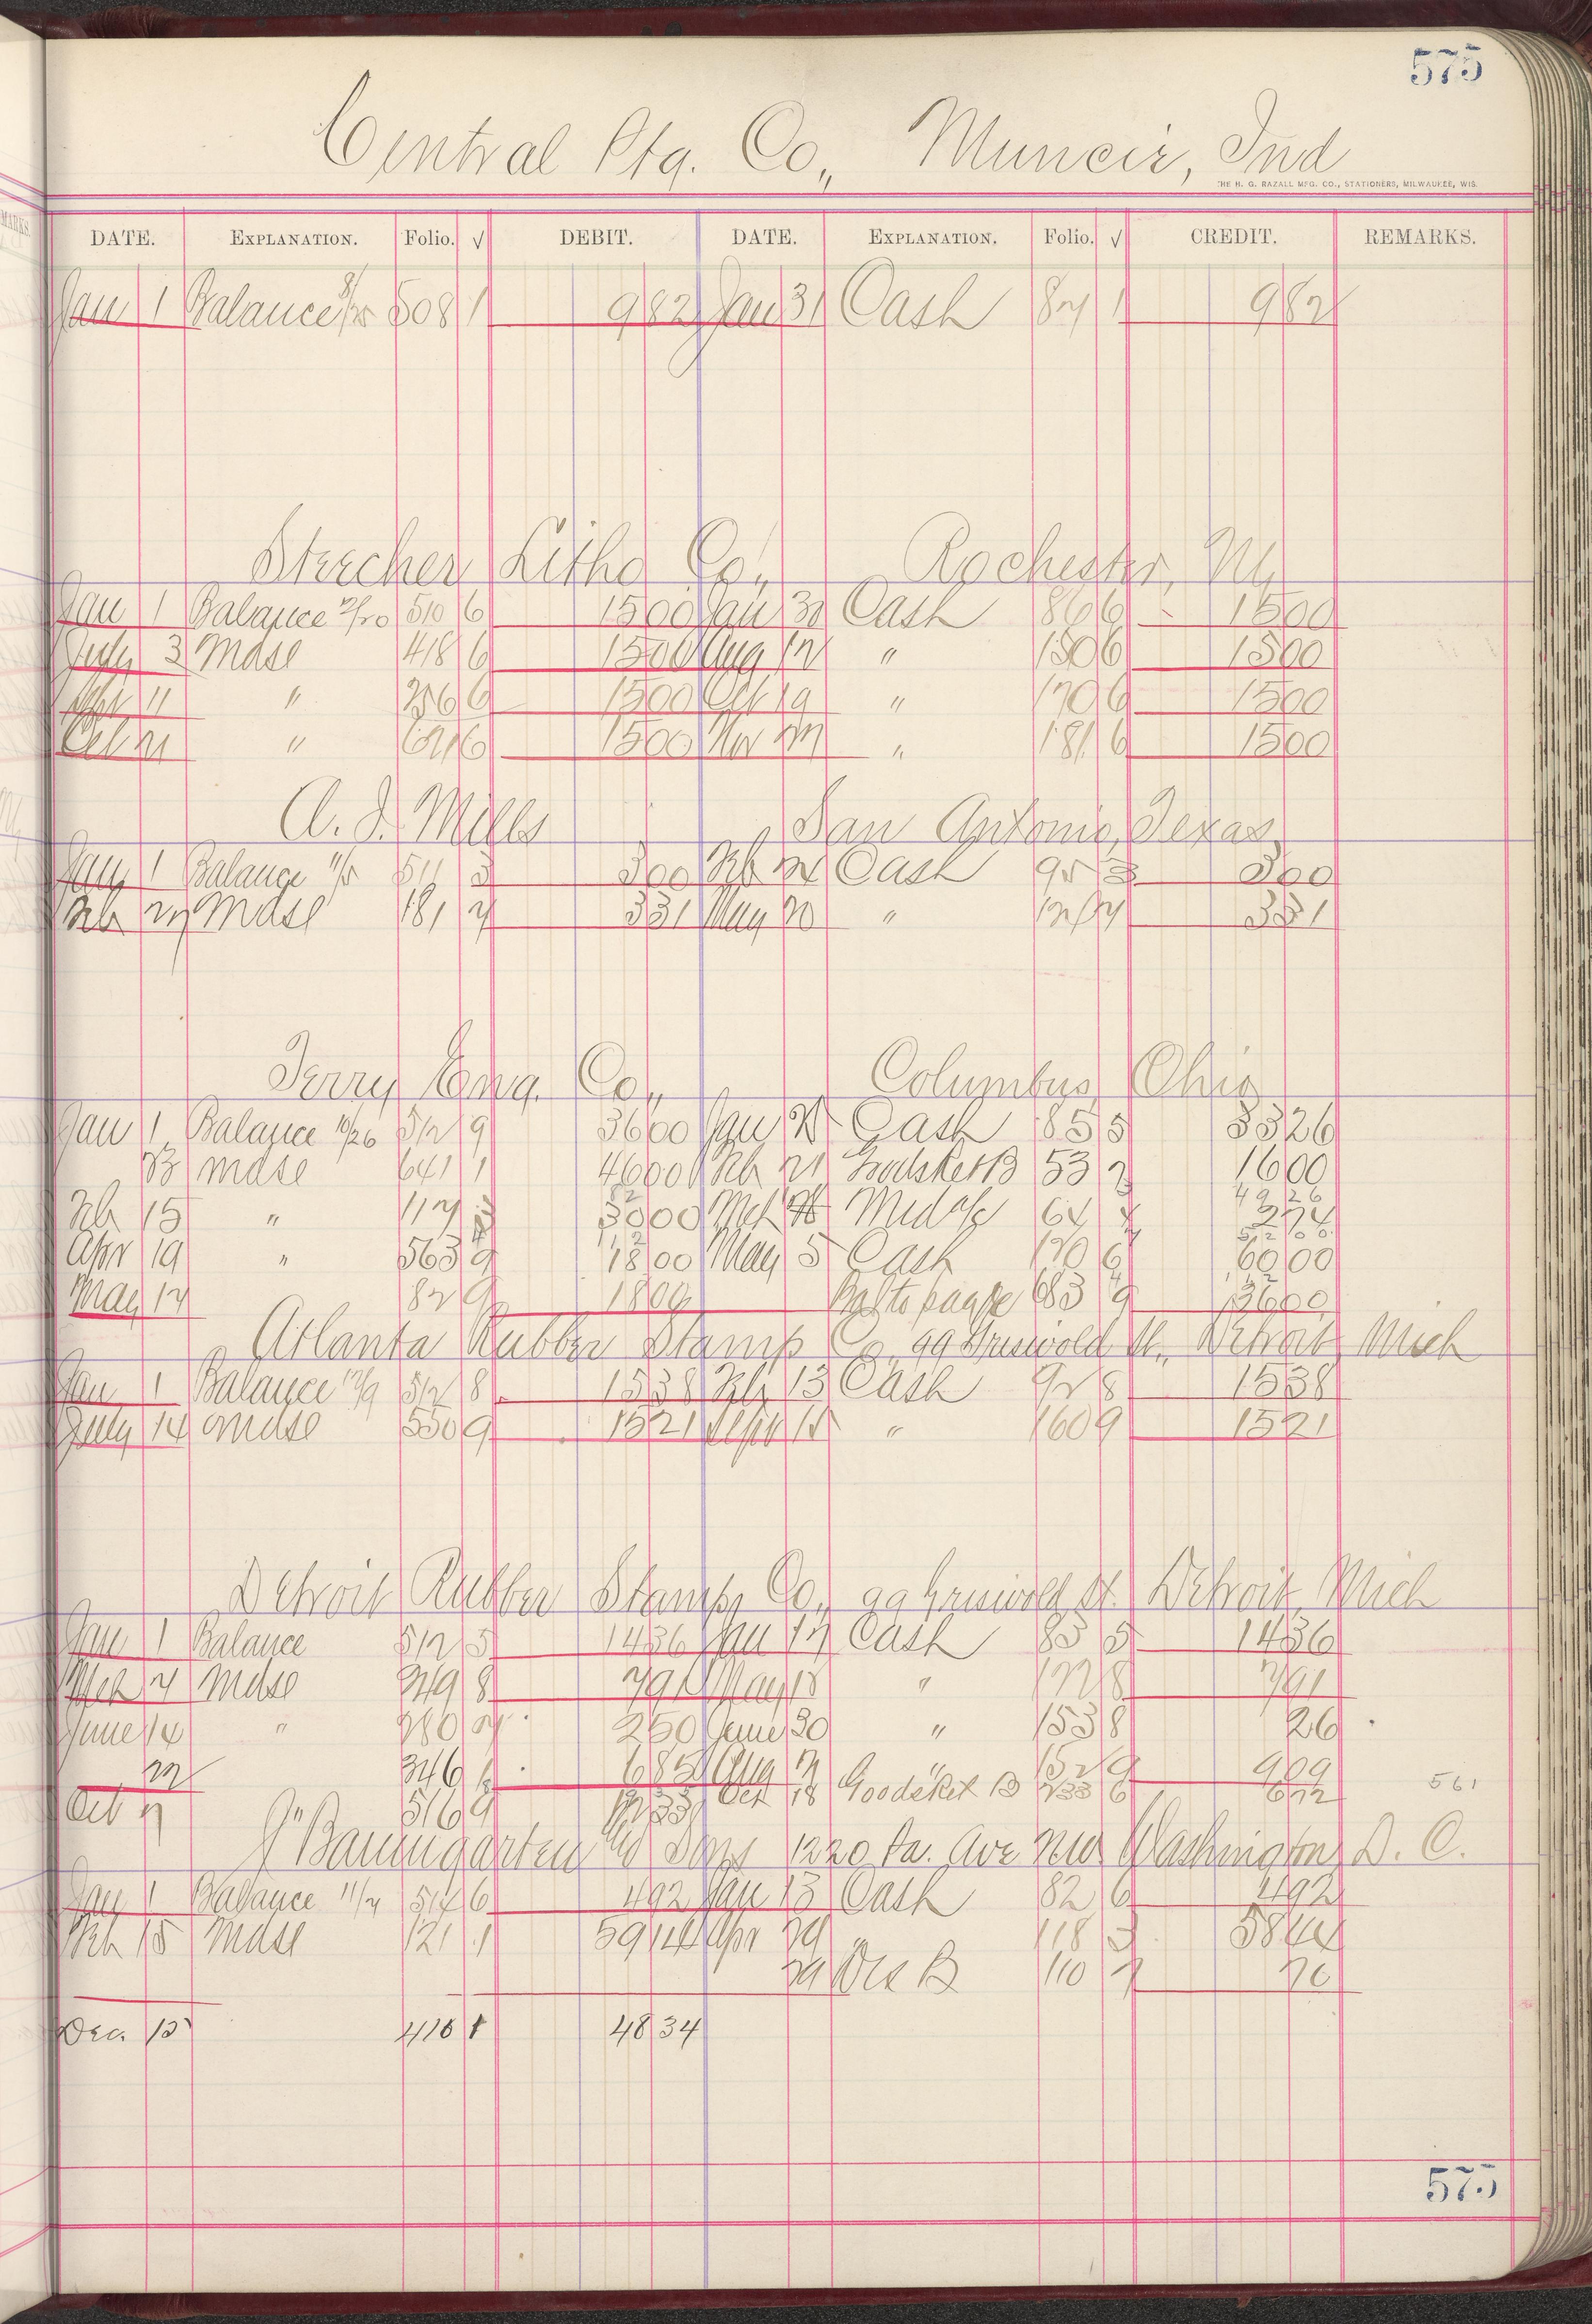 575
Central Ptg. Co., Muncie, Ind
THE H. G. RAZALL MFG. CO., STATIONERS, MILWAUKEE, WIS.
DATE. EXPLANATION. Folio. √ DEBIT. DATE. EXPLANATION. Folio. √ CREDIT. REMARKS.
Jan 1 Balance 508 1 982 Jan 31 Cash 87 1 982
Stecher Litho Co., Rochester, NY
Jan 1 Balance 510 6 1500 Jan 30 Cash 86 6 1500
July 3 Mdse 418 6 1500 Aug 12 " 150 6 1500
11 " 256 6 1500 Oct 19 " 170 6 1500
Oct 21 " 6 1500 Nov " 181 6 1500
A. J. Mills San Antonio, Texas
Jan 1 Balance 511 3 300 Feb Cash 95 3 300
Feb 27 Mdse 181 7 331 May 20 " 7 331
Terry Eng. Co., Columbus, Ohio
Jan 1 Balance 10/26 512 9 3600 Jan Cash 85 5 3326
23 Mdse 641 1 4600 Feb 21 Goodsket B 53 2 1600
Feb 15 " 117 3000 Mch Mdse 64 274
Apr 19 " 563 9 1800 May 5 Cash 120 6 6000
May 12 82 9 1809 Bal to page 683 9 3600
Atlanta Rubber Stamp Co., 99 Griswold St., Detroit Mich
Jan 1 Balance 12/9 512 8 1538 Feb 13 Cash 92 8 1538
July 14 Mdse 550 9 1521 Sept 15 " 160 9 1521
Detroit Rubber Stamp Co., 99 Griswold St. Detroit, Mich
Jan 1 Balance 512 5 1436 Jan 17 Cash 83 5 1436
Mch 7 Mdse 249 8 791 May 18 " 127 8 791
June 14 " 280 7 250 June 30 " 153 8 26
22 346 1 685 Aug 2 " 152 9 909
Oct 7 " 516 9 Oct 18 Goodsket B 233 6 672 561
G Baumgarten & Sons 1220 Pa. Ave NW Washington, D. C.
Jan 1 Balance 11/7 514 6 492 Jan 13 Cash 82 6 492
Feb 15 Mdse 121 1 5914 Apr 29 " 118 3 5844
29 Dis B 110 7 70
Dec. 15 416 1 4834
575